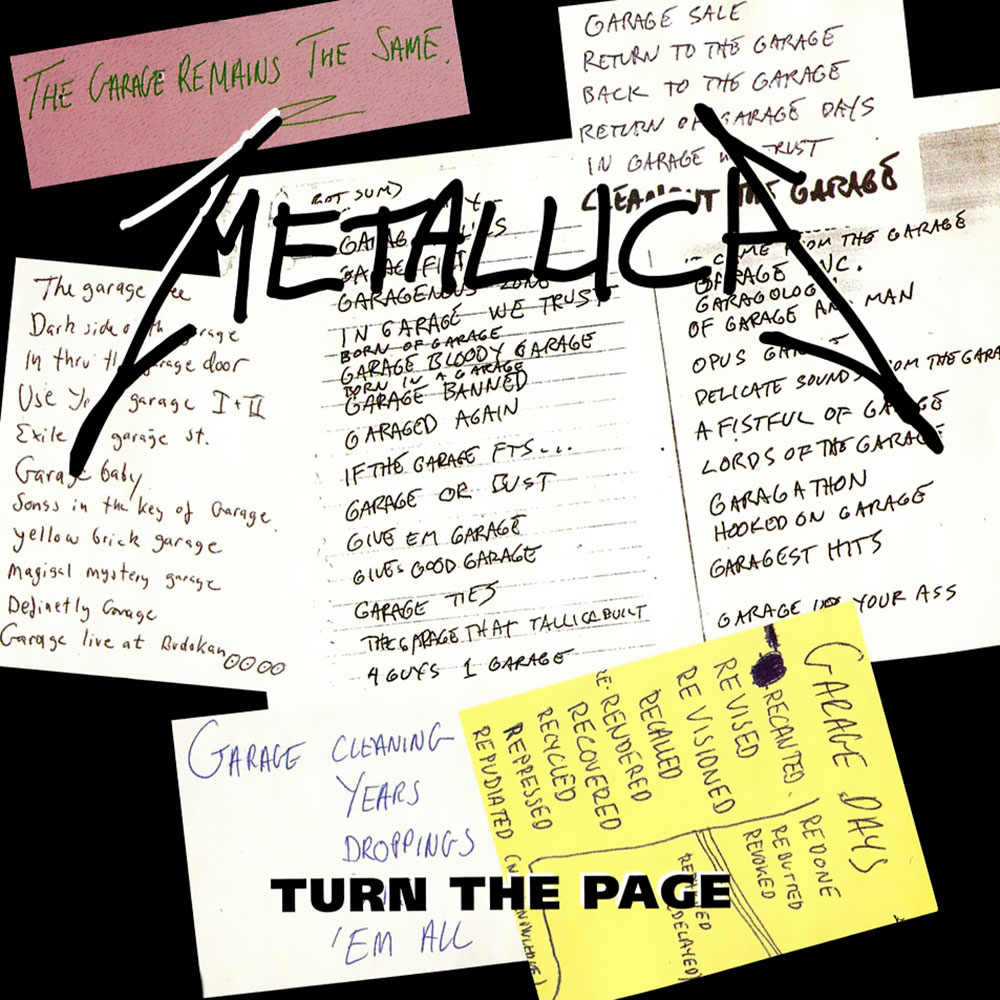 THE GARAGE REMAINS THE SAME.
GARAGE SALE
RETURN TO THE GARAGE
BACK TO THE GARAGE
RETURN OF GARAGE DAYS
IN GARAGE WE TRUST
CLEANOUT THE GARAGE
METALLICA
The garage
Dark side of the garage
In thru the garage door
Use Yr garage I+II
Exile garage st.
Garage baby
Songs in the key of Garage
yellow brick garage
Magical mystery garage
Definetly Garage
Garage live at Budokan
GARAGENOUS ZONE
IN GARAGE WE TRUST
BORN OF GARAGE
GARAGE BLOODY GARAGE
BORN IN A GARAGE
GARAGE BANNED
GARAGED AGAIN
IF THE GARAGE FTS...
GARAGE OR BUST
GIVE EM GARAGE
GIVES GOOD GARAGE
GARAGE TIES
THE GARAGE THAT TALLICA BUILT
4 GUYS 1 GARAGE
IT CAME FROM THE GARAGE
GARAGE INC.
GARAGOLOGY
OF GARAGE AND MAN
OPUS
DELICATE SOUNDS FROM THE GARA
A FISTFUL OF GARAGE
LORDS OF THE GARAGE
GARAGATHON
HOOKED ON GARAGE
GARAGEST HITS
GARAGE UP YOUR ASS
GARAGE CLEANING
YEARS
DROPPINGS
'EM ALL
GARAGE DAYS
RECANTED.
REVISED
REVISIONED
RECALLED
RE-RENDERED
RECOVERED
RECYCLED
REPRESSED
REPUDIATED
REDONE
REBUTTED
REVOKED
TURN THE PAGE